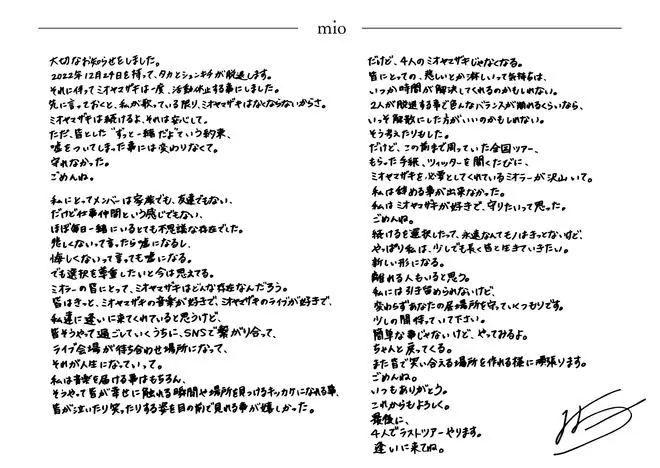 mio
大切なお知らせをしました。
2022年12月24日を持って、タカとシュンキチが脱退します。
それに伴ってミオヤマザキは一度、活動休止する事にしました。
先に言っておくと、私が歌っている限り、ミオヤマザキはなくならないからさ。
ミオヤマザキは続けるよ、それは安心して。
ただ、皆とした"ずっと一緒だよ"という約束、
嘘をついてしまった事には変わりなくて。
守れなかった。
ごめんね。
私にとってメンバーは家族でも、友達でもない、
だけど仕事仲間という感じでもない、
ほぼ毎日一緒にいるとても不思議な存在でした。
悲しくないって言ったら嘘になるし、
悔しくないって言っても嘘になる。
でも選択を尊重したいと今は思えてる。
ミオラーの皆にとって、ミオヤマザキはどんな存在なんだろう。
皆はきっと、ミオヤマザキの音楽が好きで、ミオヤマザキのライブが好きで、
私達に逢いに来てくれていると思うけど、
皆そうやって過ごしていくうちに、SNSで繋がり合って、
ライブ会場が待ち合わせ場所になって、
それが人生になっていって。
私は音楽を届ける事はもちろん、
そうやって皆が幸せに触れる瞬間や場所を見つけるキッカケになれる事、
皆が泣いたり笑ったりする姿を目の前で見れる事が嬉しかった。
だけど、4人のミオヤマザキじゃなくなる。
皆にとっての、悲しいとか淋しいって気持ちは、
いつか時間が解決してくれるのかもしれない。
2人が脱退する事で色んなバランスが崩れるくらいなら、
いっそ解散にした方がいいのかもしれない。
そう考えたりもした。
だけど、この前まで周っていた全国ツアー、
もらった手紙、ツイッターを開くたびに、
ミオヤマザキを必要としてくれているミオラーが沢山いて。
私は辞める事が出来なかった。
私はミオヤマザキが好きで、守りたいって思った。
ごめんね。
続けるを選択したって、永遠なんてモノはきっとないけど、
やっぱり私は、少しでも長く皆と生きていきたい。
新しい形になる。
離れる人もいると思う。
私には引き留められないけど、
変わらずあなたの居場所を守っていくつもりです。
少しの間待っていて下さい。
簡単な事じゃないけど、やってみるよ。
ちゃんと戻ってくる。
また皆で笑い合える場所を作れる様に頑張ります。
ごめんね。
いつもありがとう。
これからもよろしく。
最後に、
4人でラストツアーやります。
逢いに来てね。